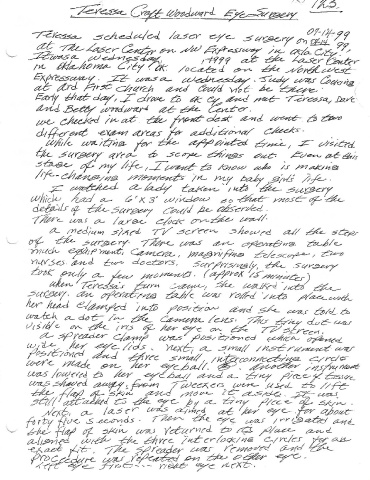 Teressa Craft Woodward Eye Surgery
1 & 3
09-14-99
Teressa scheduled laser eye surgery on 99,
at The Laser Center on NW Expressway in Okla City,
It was a Wednesday, 1999 at the Laser Center
in Oklahoma City Ok located on the Northwest
Expressway. It was a Wednesday. Judy was
at 3rd First Church and could not be there
Early that day, I drove to OK Cy and met Teressa,
and Betty Woodward at the Center.
We checked in at the front desk and went to two
different exam areas for additional checks.
While waiting for the appointed time, I visited
the surgery area to scope things out. Even at this
stage of my life, I want to know who is making
life-changing movements in my baby girl's life.
I watched a lady taken into the surgery
which had a 6'X3' window so that most of the
details of the surgery could be observed.
There was a large clock on the wall.
A medium sized TV screen showed all the steps
of the surgery. There was an operating table
much equipment, camera, magnifing telescope, two
nurses and two doctors. Surprisingly, the surgery
took only a few moments. (approx 15 minutes)
When Teressa's turn came, she walked into the
surgery. An operating table was rolled into place with
her head clamped into position and she was told to
watch a dot in the camera lens. This tiny dot was
visible on the iris of her eye on the TV screen.
A spreader clamp was positioned which opened
wide her eye lids. Next, a small instrument was
positioned and three small, interconnecting circles
were made on her eyeball. Another instrument
was lowered to her eyeball and a tiny piece of tissue
was shaved away from. Tweezers were used to lift
the flap of skin and move it aside. It was
still attached to the eye by a tiny piece of skin.
Next, a laser was aimed at her eye for about
forty five seconds. Then the eye was irrigated and
the flap of skin was returned to its place and
aligned with the three interlocking circles for an
exact fit. The spreader was removed and the
procedure was repeated on the other eye.
Left eye first... right eye next.